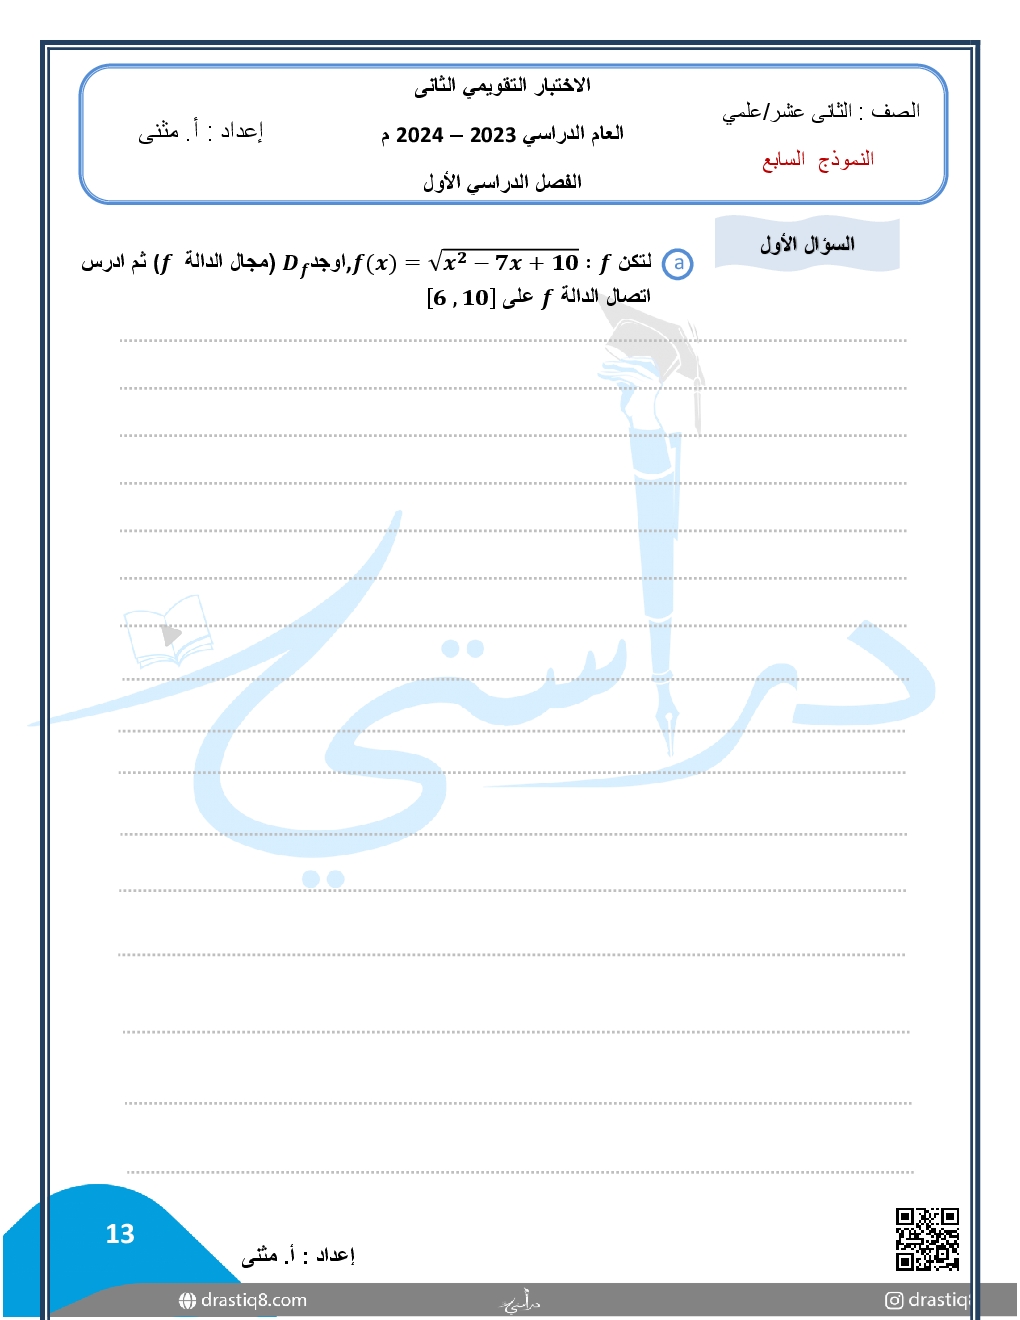 الاختبار التقويمي الثاني
الصف : الثاني عشر/علمي
العام الدراسي 2023 – 2024 م
إعداد : أ. مثنى
النموذج السابع
الفصل الدراسي الأول
السؤال الأول
a لتكن f : f(x) = √(x² − 7x + 10) ,اوجد D_f (مجال الدالة f) ثم ادرس
اتصال الدالة f على [6 , 10]
دراستي
13
إعداد : أ. مثنى
drastiq8.com
دراستي
drastiq8